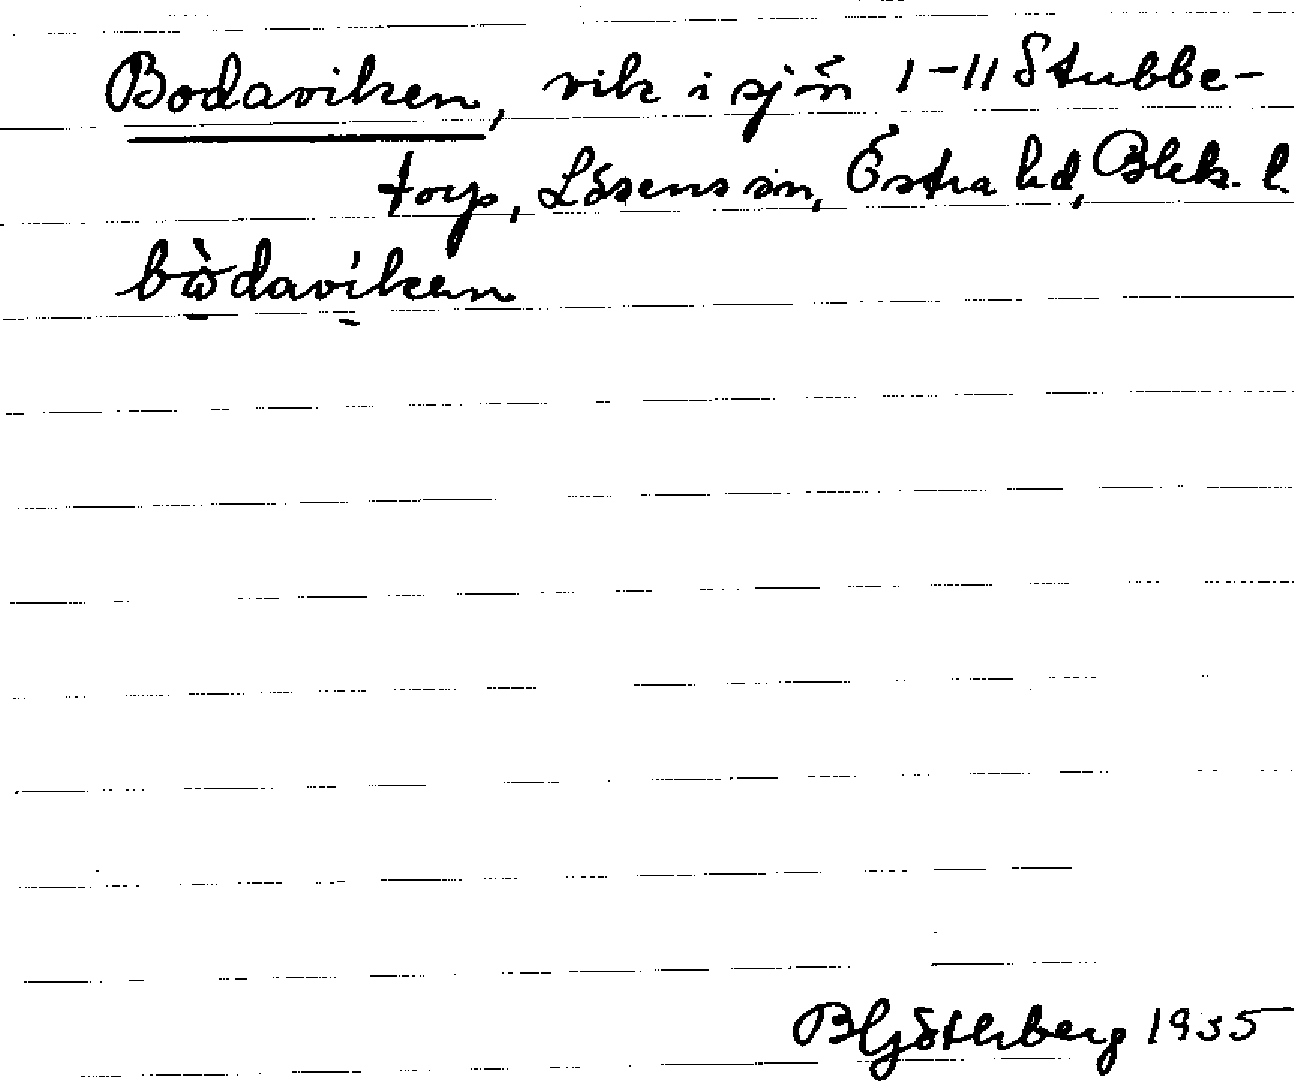 Bodaviken, vik i sjön 1-11 Stubbe-
torp, Lösens sn, Östra hd, Blek. l.
bὼdavíken
B Götherberg 1935